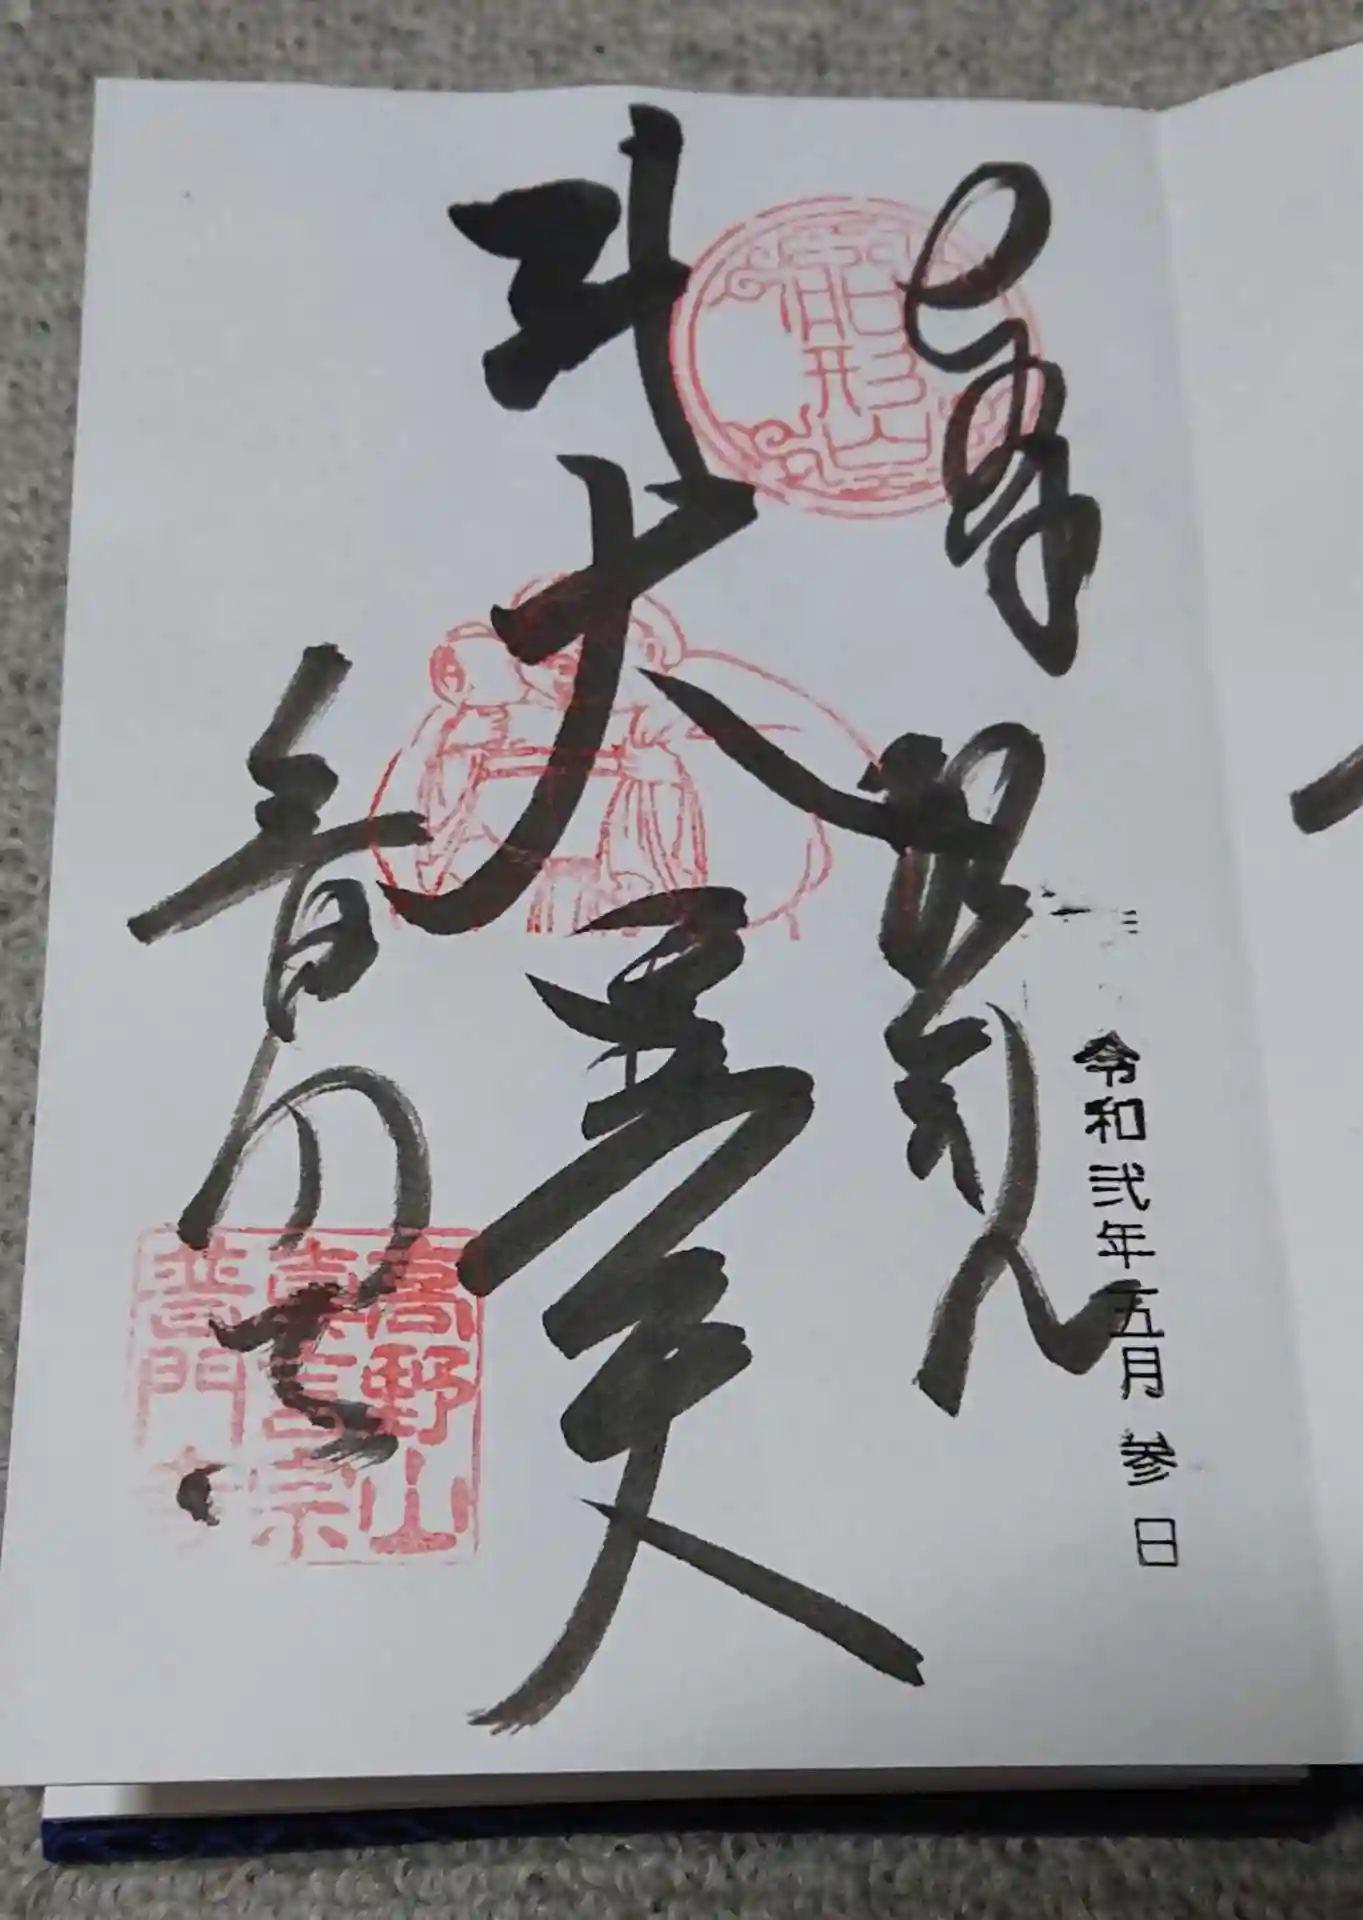 令和弐年五月参日
奉拝
大黒天
普門寺
船形山
高野山
真言宗
普門寺